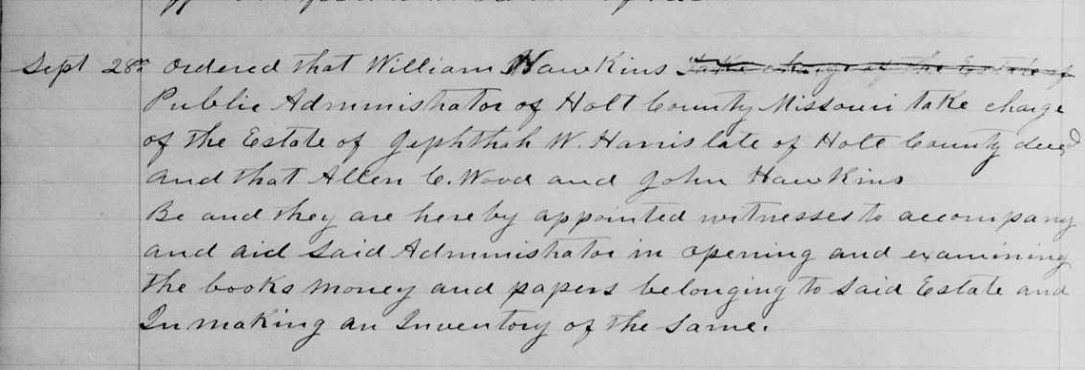 Sept 28th Ordered that William Hawkins take charge of the Estate of
Public Administrator of Holt County Missouri take charge
of the Estate of Jephthah W. Harris late of Holt County decd
and that Allen C. Wood and John Hawkins
Be and they are hereby appointed witnesses to accompany
and aid said Administrator in opening and examining
the books money and papers belonging to said Estate and
In making an Inventory of the same.